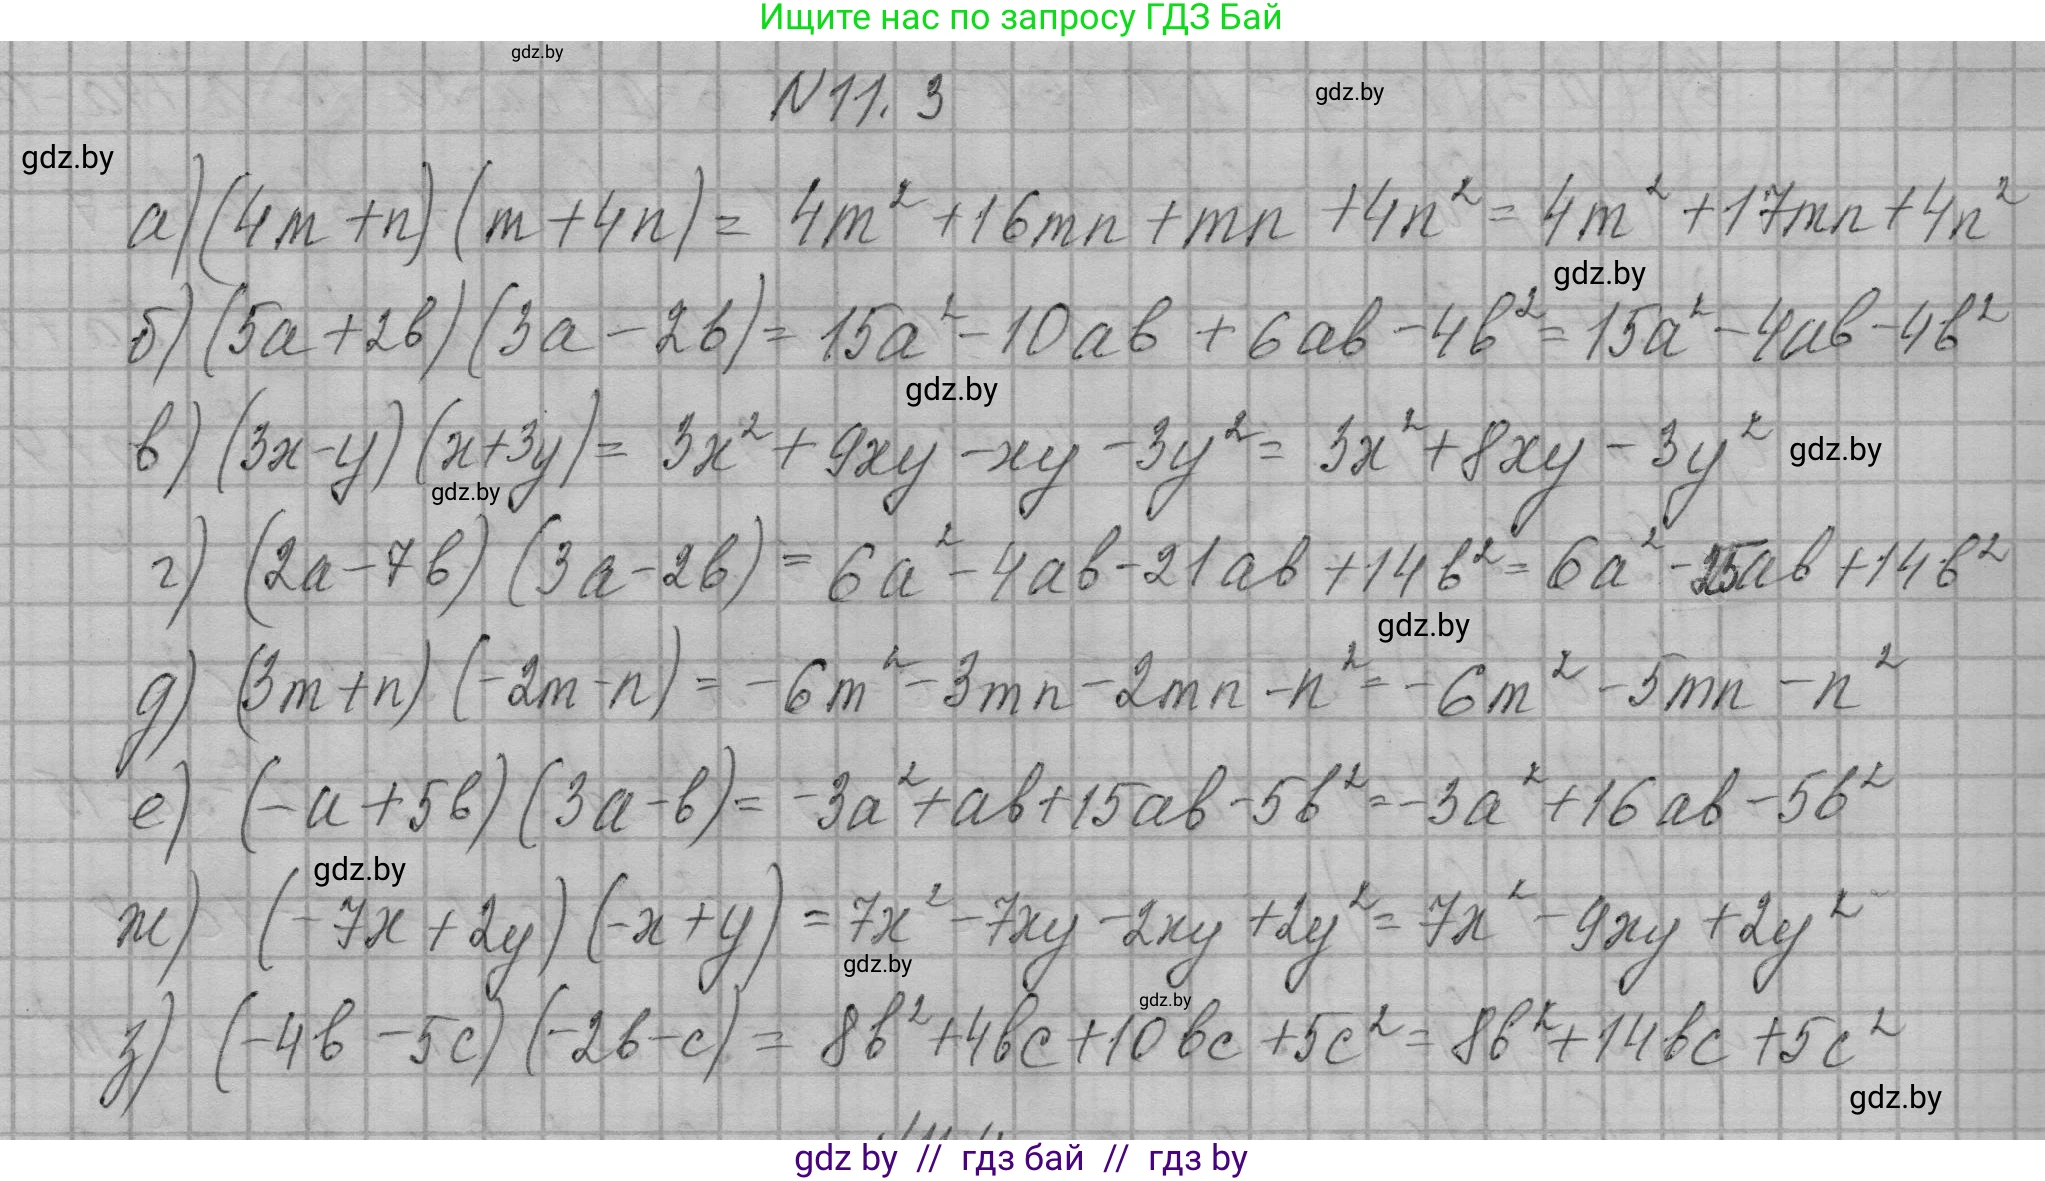 Ищите нас по запросу ГДЗ Бай
gdz.by
N 11. 3
gdz.by
gdz.by
а) (4m + n) (m + 4n) = 4m² + 16mn + mn + 4n² = 4m² + 17mn + 4n²
gdz.by
б) (5a + 2b) (3a - 2b) = 15a² - 10ab + 6ab - 4b² = 15a² - 4ab - 4b²
gdz.by
в) (3x - y) (x + 3y) = 3x² + 9xy - xy - 3y² = 3x² + 8xy - 3y²
gdz.by
gdz.by
г) (2a - 7b) (3a - 2b) = 6a² - 4ab - 21ab + 14b² = 6a² - 25ab + 14b²
gdz.by
д) (3m + n) (-2m - n) = -6m² - 3mn - 2mn - n² = -6m² - 5mn - n²
е) (-a + 5b) (3a - b) = -3a² + ab + 15ab - 5b² = -3a² + 16ab - 5b²
gdz.by
ж) (-7x + 2y) (-x + y) = 7x² - 7xy - 2xy + 2y² = 7x² - 9xy + 2y²
gdz.by
gdz.by
з) (-4b - 5c) (-2b - c) = 8b² + 4bc + 10bc + 5c² = 8b² + 14bc + 5c²
gdz.by
gdz by // гдз бай // гдз by